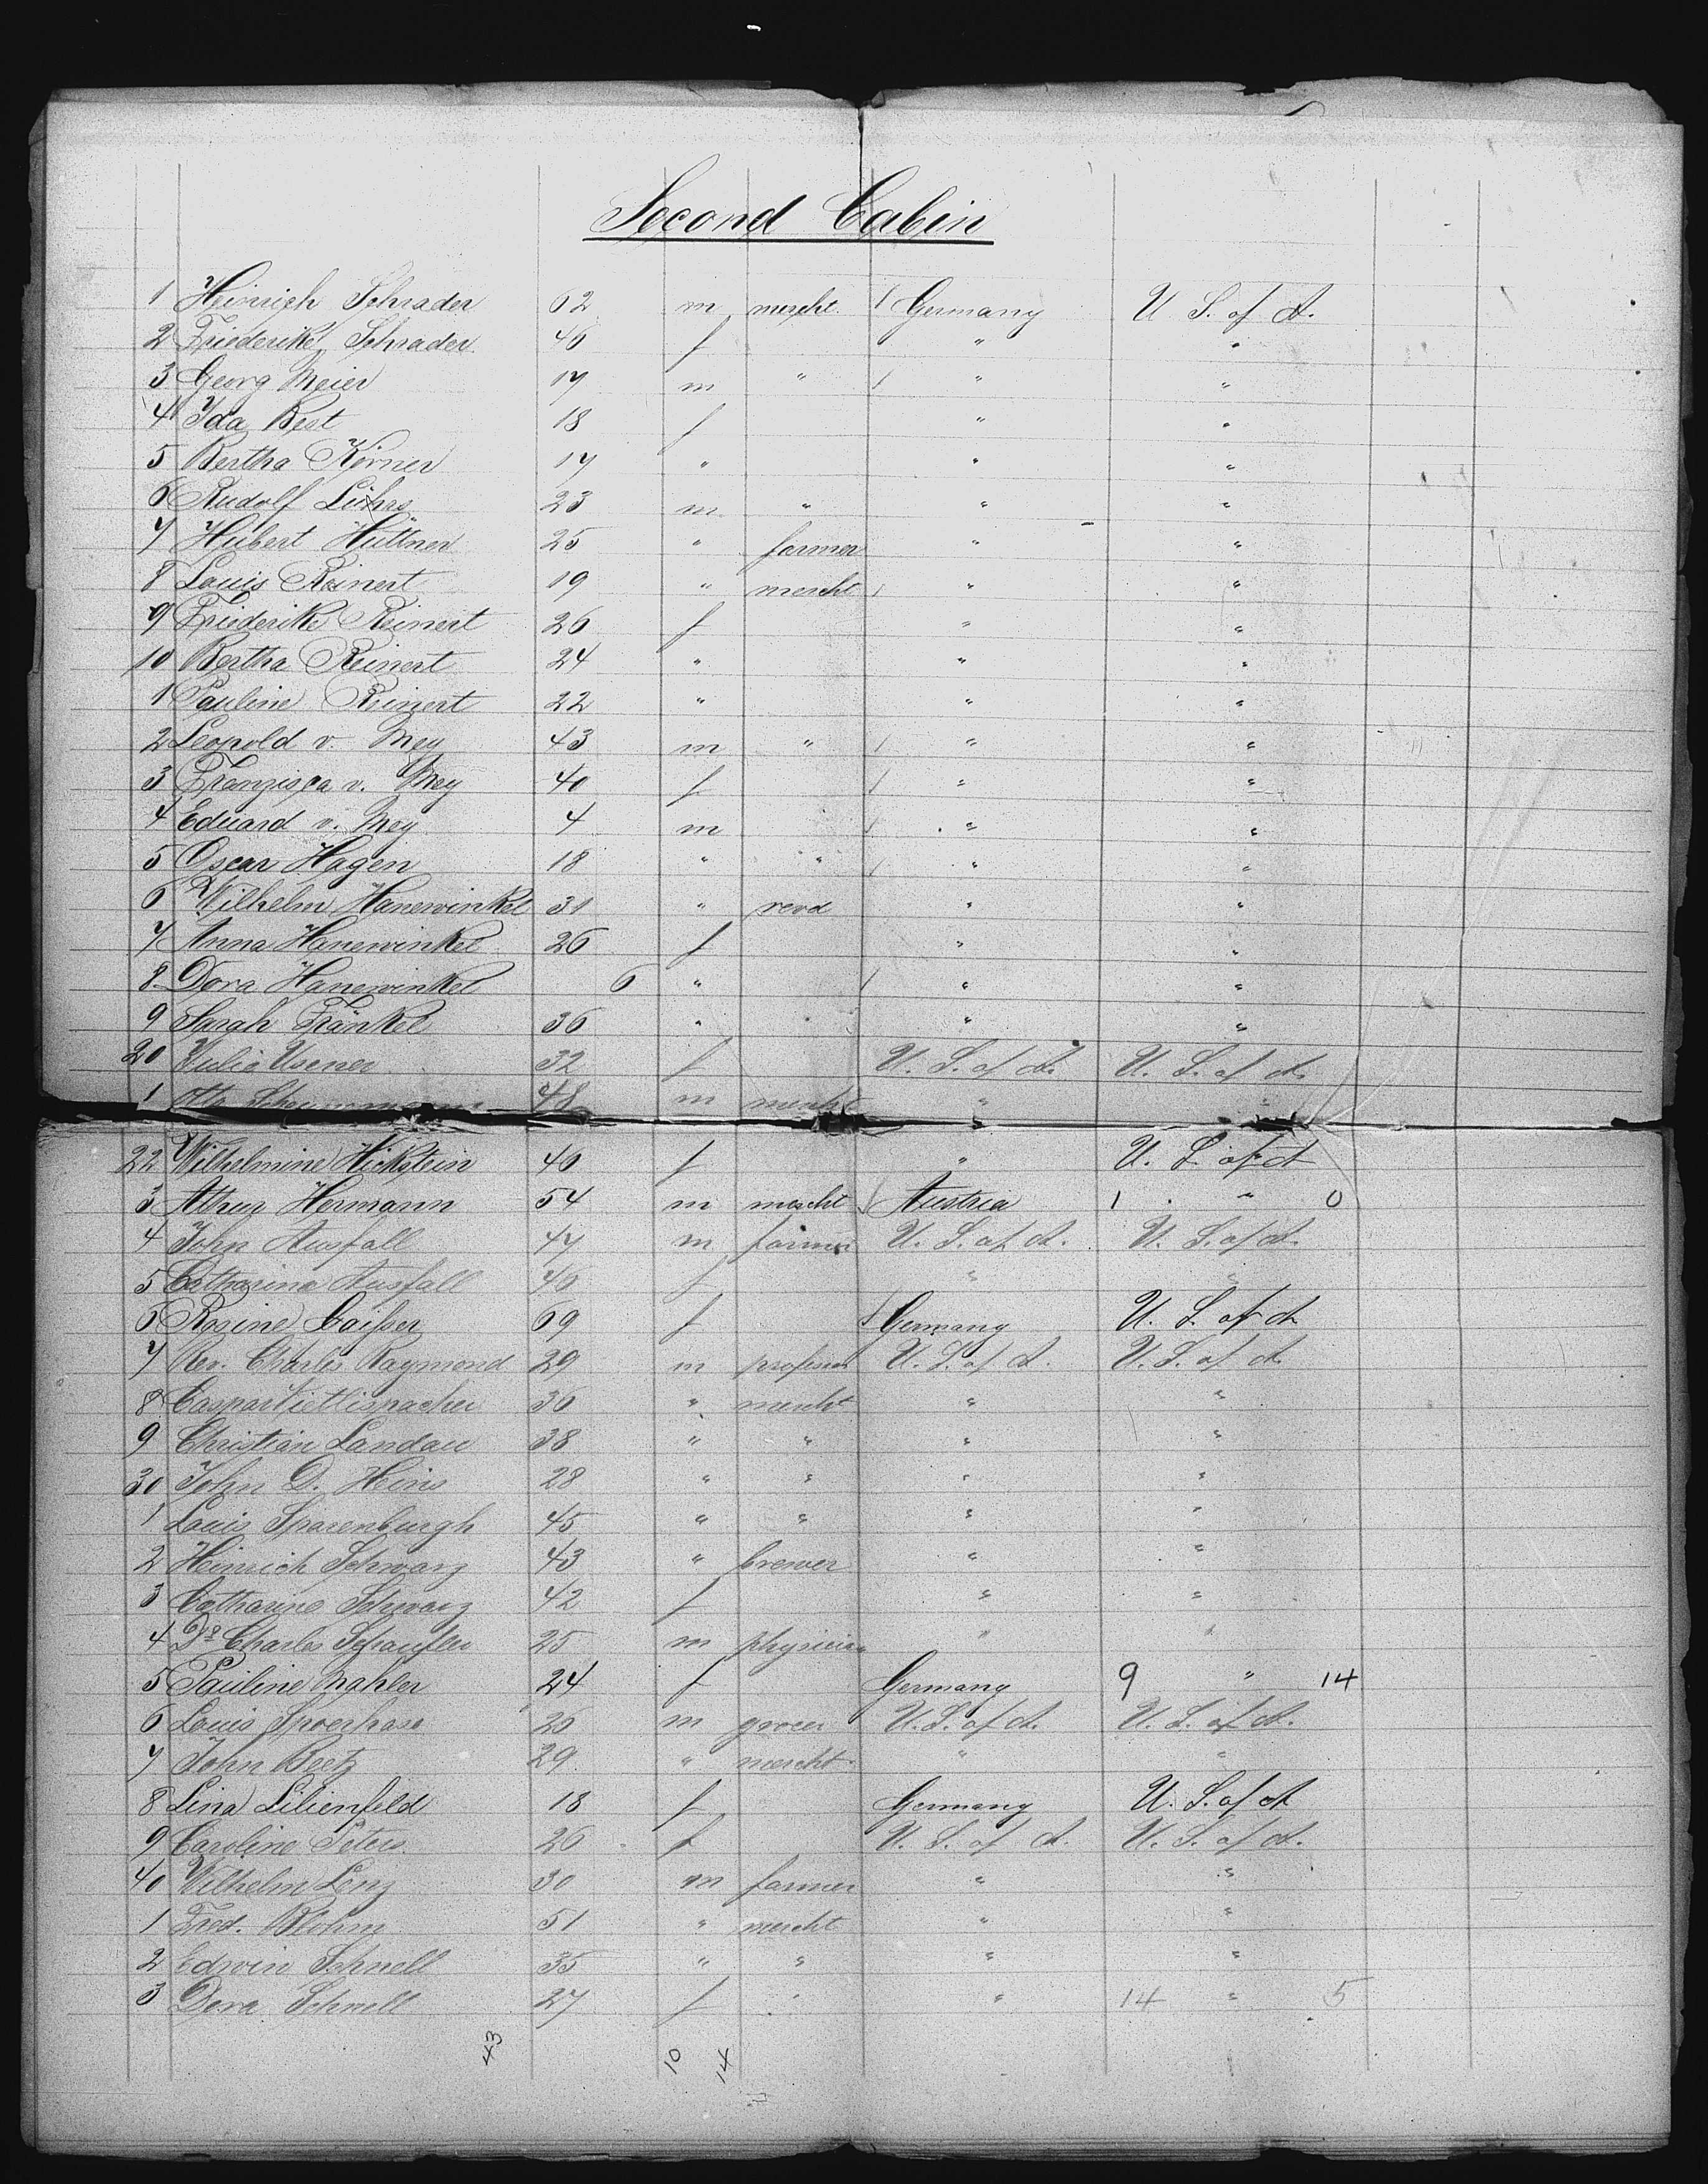 Second Cabin
1 Heinrich Schrader 62 m mercht. Germany U. S. of A.
2 Friederike Schrader 46 f " "
3 Georg Meier 17 m " " "
4 Ida Best 18 f " "
5 Bertha Körner 17 " " "
6 Rudolf Lührs 23 m " " "
7 Hubert Hüttner 25 " farmer " "
8 Louis Reinert 19 " mercht " "
9 Friederike Reinert 26 f " "
10 Bertha Reinert 24 " " "
1 Pauline Reinert 22 " " "
2 Leopold v. Mey 43 m " " "
3 Franzisca v. Mey 40 f " "
4 Eduard v. Mey 4 m " "
5 Oscar Hagen 18 " " " "
6 Wilhelm Hanewinkel 31 " revd " "
7 Anna Hanewinkel 26 f " "
8 Dora Hanewinkel 6 " " "
9 Sarah Fränkel 36 " " "
20 Julie Usener 32 f U. S. of A. U. S. of A.
1 Otto 48 m mercht " "
22 Wilhelmine Hickstein 40 f " U. S. of A
3 Hermann 54 m mercht Austria 1 " 0
4 John Ausfall 47 m farmer U. S. of A. U. S. of A.
5 Catharina Ausfall 46 f " "
6 Rosine 69 f Germany U. S. of A
7 Rev. Charles Raymond 29 m professor U. S. of A. U. S. of A.
8 Caspar 36 " mercht " "
9 Christian Landau 38 " " " "
30 John D. Heins 28 " " " "
1 Louis Sparenburgh 45 " " " "
2 Heinrich Schwarz 43 " brewer " "
3 Catharine Schwarz 42 f " "
4 Dr Charles Schaufler 25 m physician " "
5 Pauline Mahler 24 f Germany 9 " 14
6 Louis Spoerhase 26 m grocer U. S. of A. U. S. of A.
7 John Beetz 29. " mercht. " "
8 Lina Lilienfeld 18 f Germany U. S. of A
9 Caroline Peters 26 f U. S. of A. U. S. of A.
40 Wilhelm Lenz 30 m farmer " "
1 Fred. Blohm 51 " mercht " "
2 Edwin Schnell 35 " " " "
3 Dora Schnell 27 f " 14 " 5
43 10 14